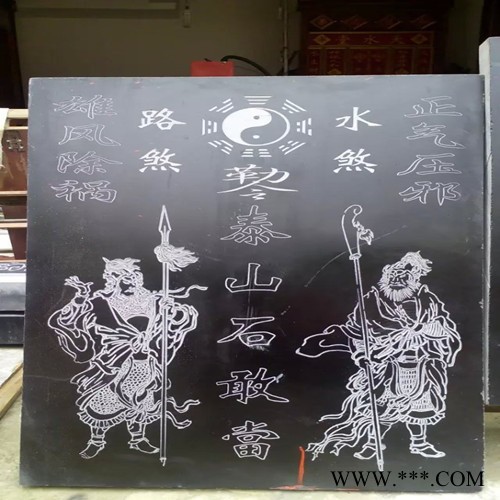 正气压邪
水煞
泰山石敢當
路煞
雄风除祸
WWW.***.COM